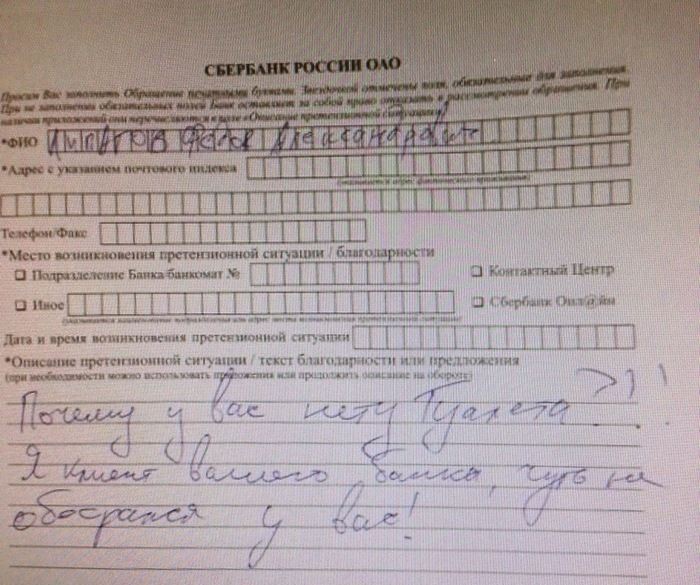 СБЕРБАНК РОССИИ ОАО
Просим Вас заполнить Обращение печатными буквами. Звездочкой отмечены поля, обязательные для заполнения.
При не заполнении обязательных полей Банк оставляет за собой право отказать в рассмотрении обращения. При
наличии приложений они перечисляются в поле «Описание претензионной ситуации»
*ФИО Александрович
*Адрес с указанием почтового индекса
Телефон/Факс
*Место возникновения претензионной ситуации / благодарности
Подразделение Банка/банкомат № Контактный Центр
Иное Сбербанк Онл@йн
(указывается наименование подразделения или адрес места возникновения претензионной ситуации)
Дата и время возникновения претензионной ситуации
*Описание претензионной ситуации / текст благодарности или предложения
(при необходимости можно использовать приложения или продолжить описание на обороте)
Почему у вас нету Туалета ?!!
Я клиент вашего банка, чуть не
обосрался у вас!